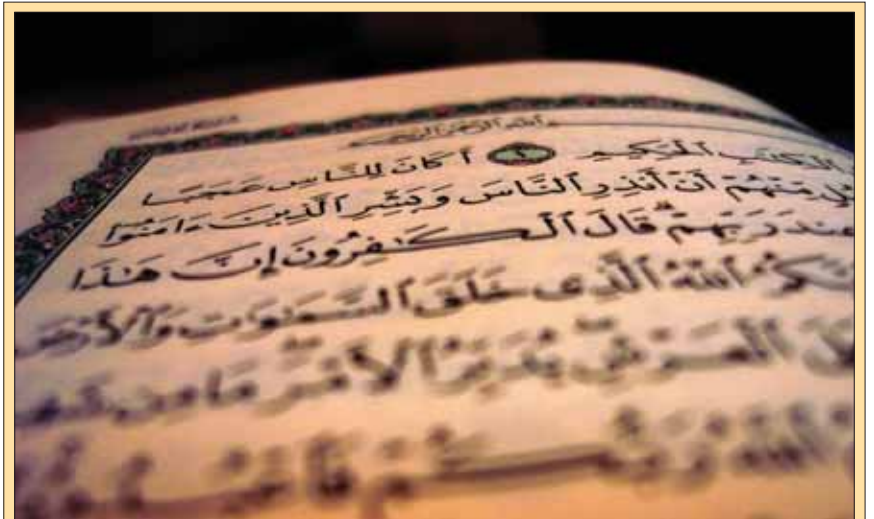 الله الرحمن الرحيم
الكتب الحكيم ١ أكان للناس عجبا
منهم أن أنذر الناس وبشر الذين ءامنوا
عند ربهم قال الكفرون إن هذا
الله الذى خلق السموت والأرض
العرش يدبر الأمر ما من
الله ربكم